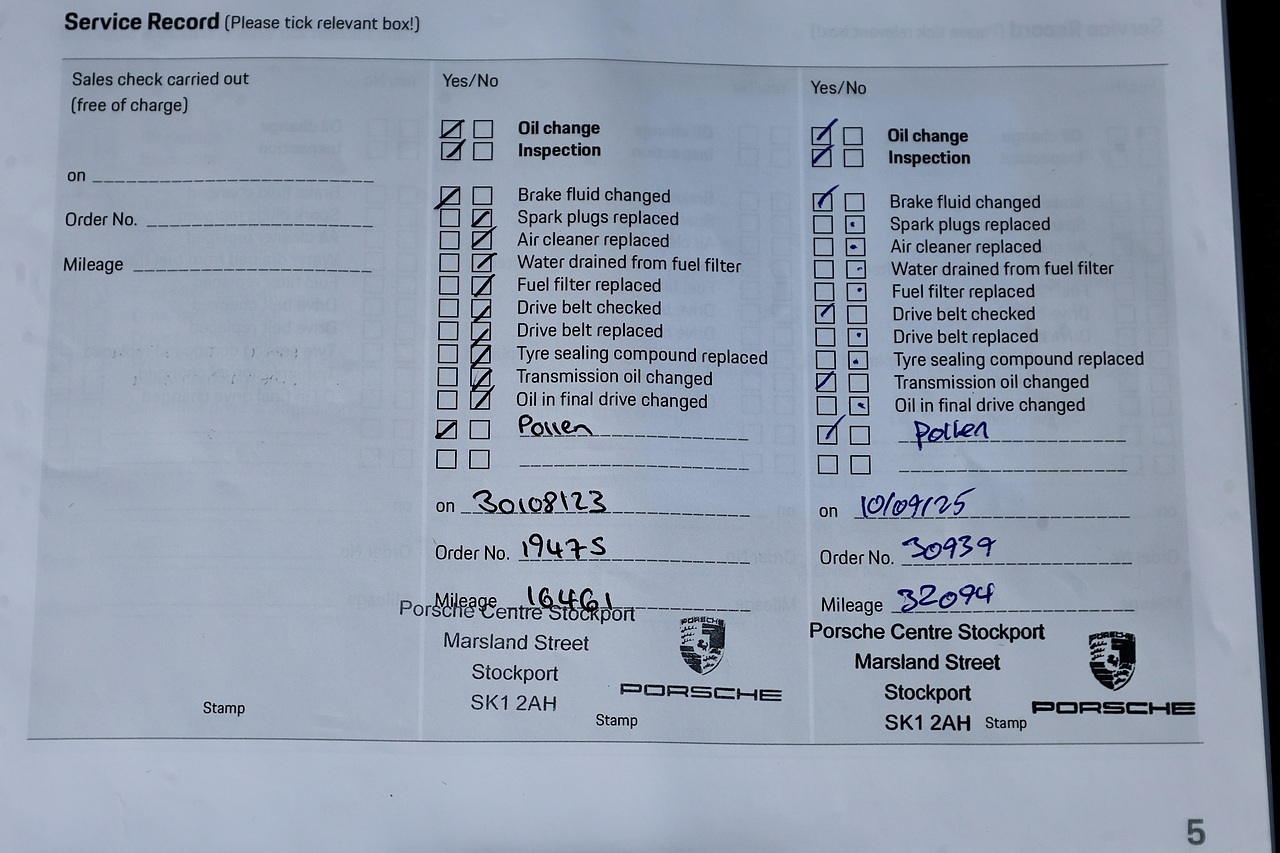 Service Record (Please tick relevant box!)
Sales check carried out
(free of charge)
on
Order No.
Mileage
Stamp
Yes/No
Oil change
Inspection
Brake fluid changed
Spark plugs replaced
Air cleaner replaced
Water drained from fuel filter
Fuel filter replaced
Drive belt checked
Drive belt replaced
Tyre sealing compound replaced
Transmission oil changed
Oil in final drive changed
Pollen
on 30/08/23
Order No. 19475
Mileage 16461
Porsche Centre Stockport
Marsland Street
Stockport
SK1 2AH
PORSCHE
PORSCHE
Stamp
Yes/No
Oil change
Inspection
Brake fluid changed
Spark plugs replaced
Air cleaner replaced
Water drained from fuel filter
Fuel filter replaced
Drive belt checked
Drive belt replaced
Tyre sealing compound replaced
Transmission oil changed
Oil in final drive changed
Pollen
on 10/09/25
Order No. 30939
Mileage 32094
Porsche Centre Stockport
Marsland Street
Stockport
SK1 2AH
PORSCHE
PORSCHE
Stamp
5